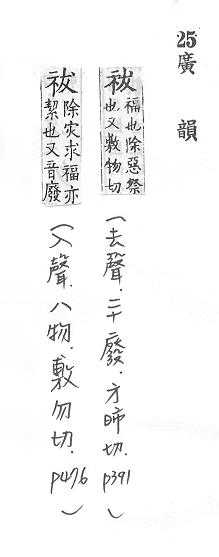 25廣韻
祓
福也除惡祭
也又敷物切
(去聲.二十廢.方肺切.p391)
祓
除灾求福亦
絜也又音廢
(入聲.八物.敷勿切.p476)